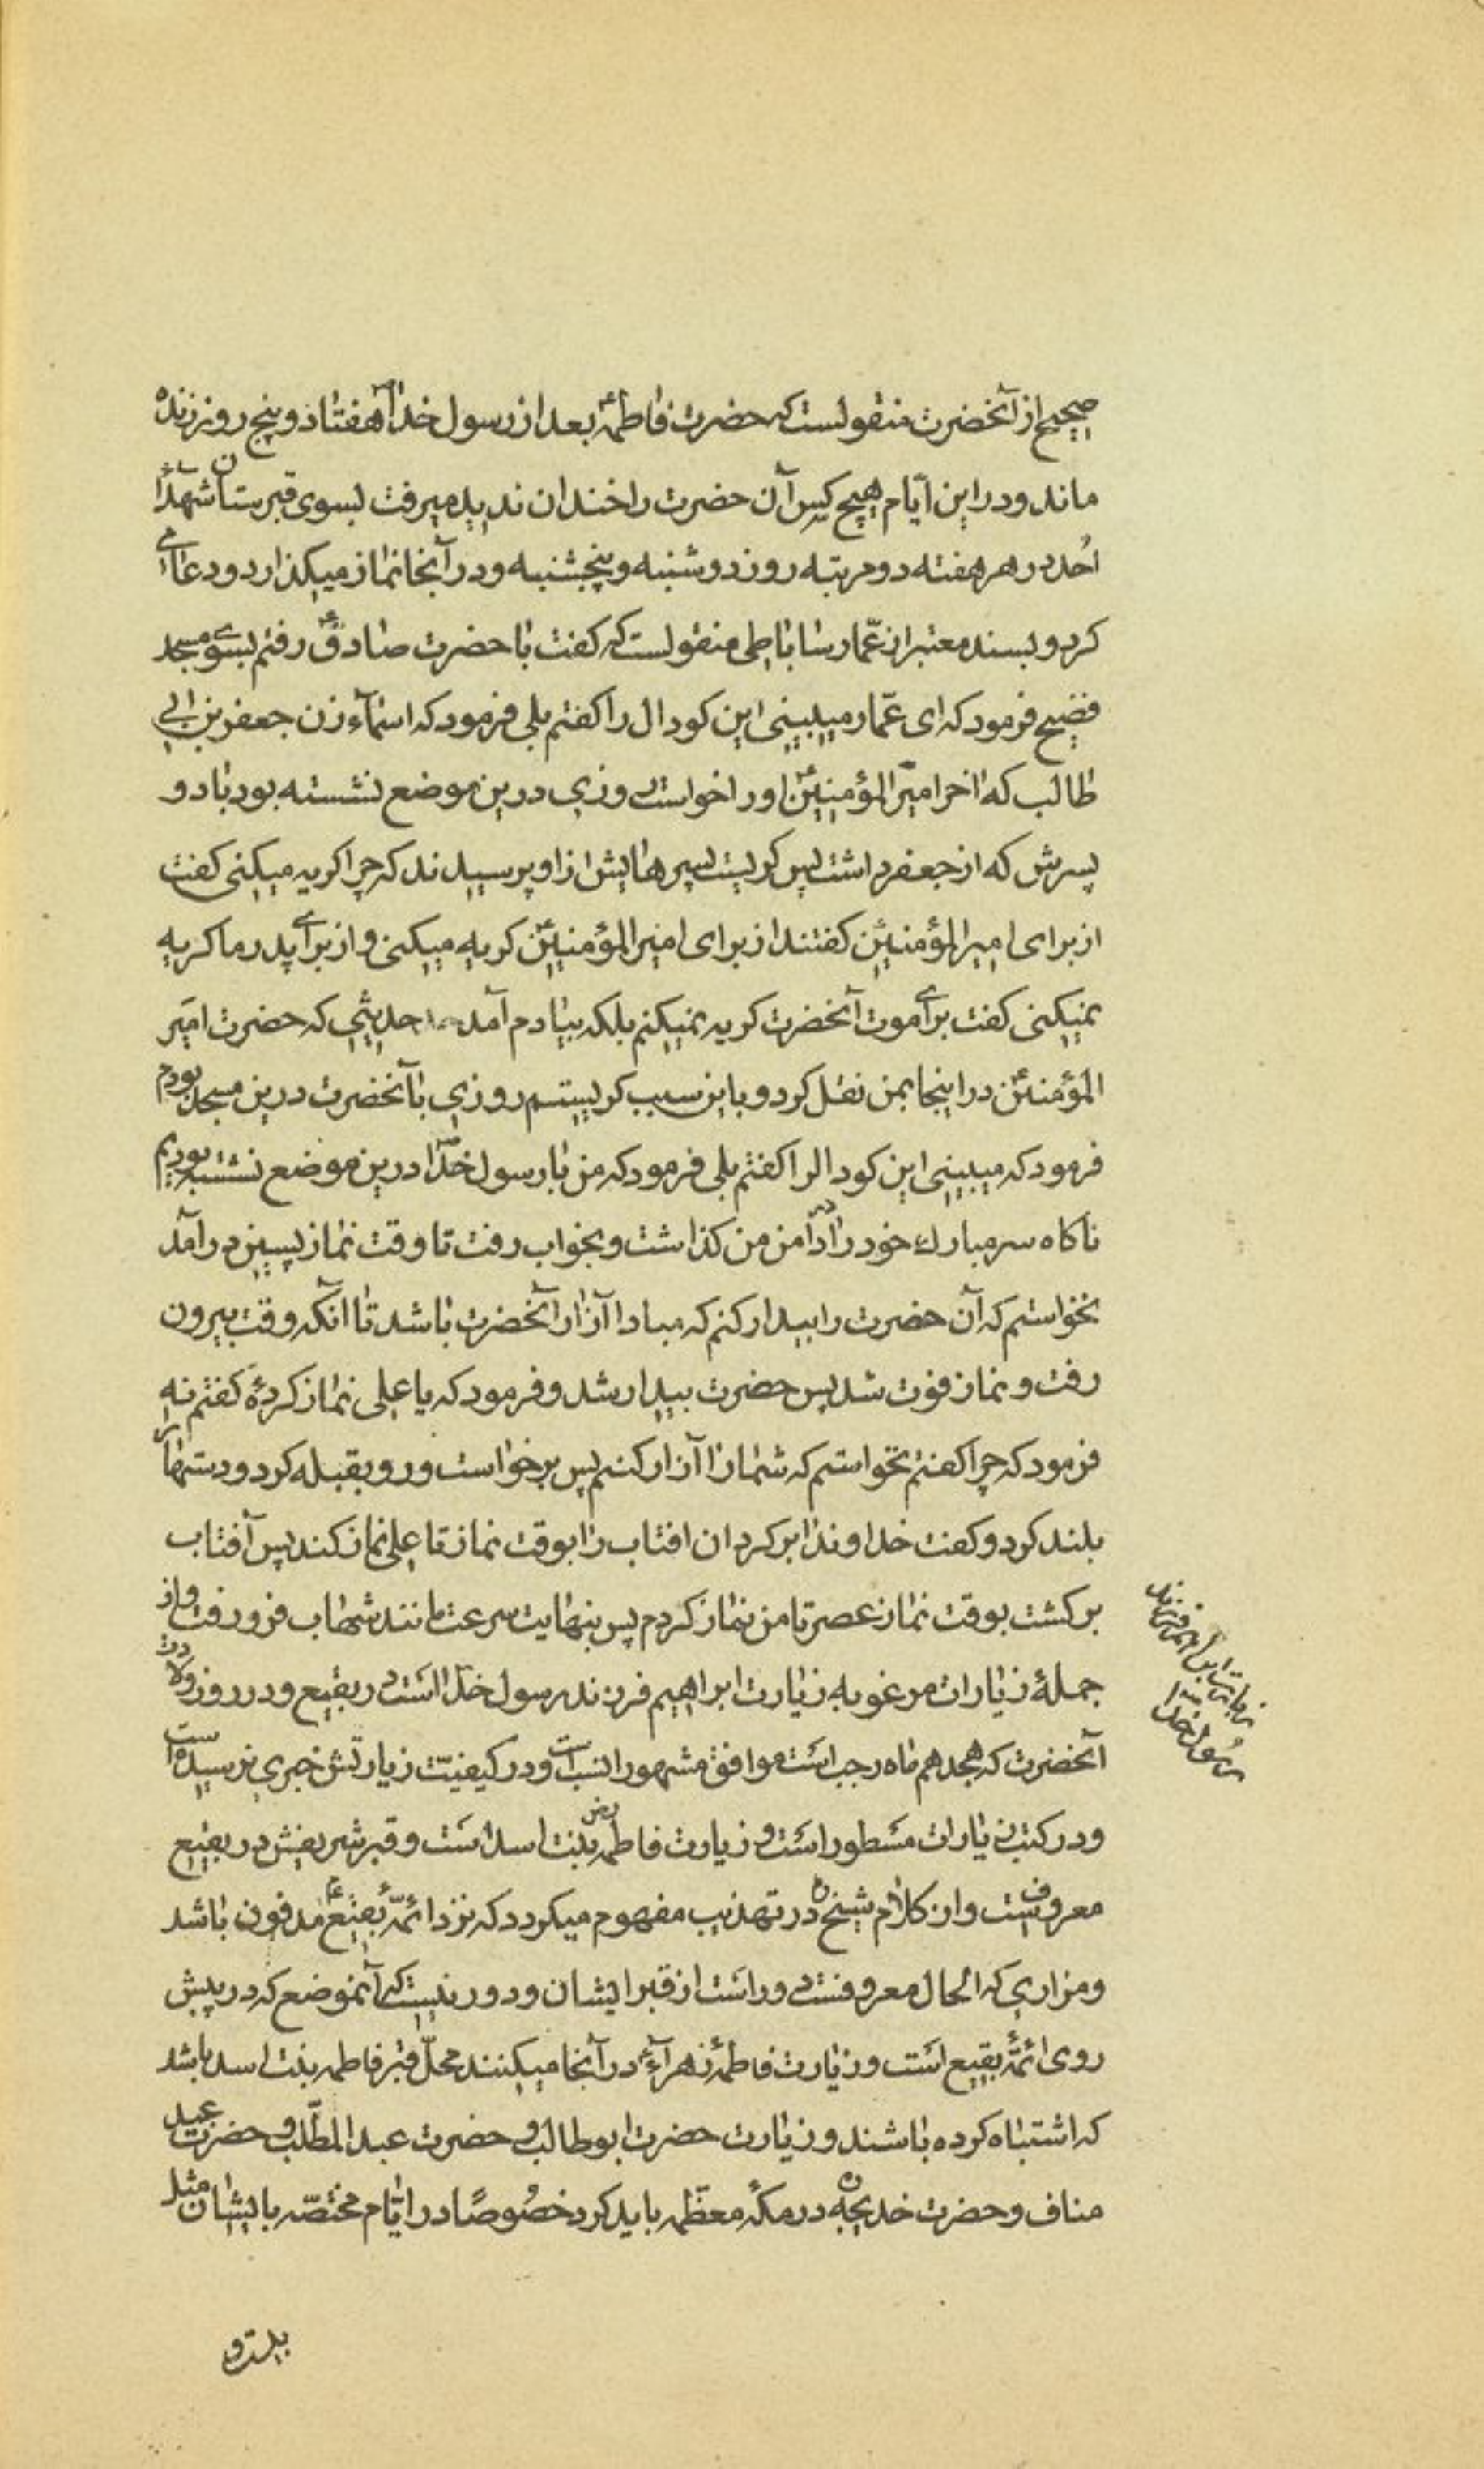 صحیح از آنحضرت منقولست که حضرت فاطمهٴ بعد از رسول خدا هفتاد و پنج روز زنده
ماند و در این ایّام هیچ کس آن حضرت را خندان ندید میرفت بسوی قبرستان شهدآء
اُحد در هر هفته دو مرتبه روز دوشنبه و پنچشنبه و در آنجا نماز میکذارد و دعا می
کرد و بسند معتبر از عمّار ساباطی منقولست که کفت با حضرت صادق رفتم بسوی مسجد
فضیح فرمود که ای عمّار میبینی این کودال را کفتم بلی فرمود که اسمآء زن جعفر بن ابی
طالب که اخر امیر المؤمنین اورا خواست روزی درین موضع نشسته بود با دو
پسرش که از جعفر داشت پس کریست پسرهایش از او پرسیدند که چرا کریه میکنی کفت
از برای امیر المؤمنین کفتند از برای امیر المؤمنین کریه میکنی و از برای پدر ما کریه
نمیکنی کفت برای موت آنحضرت کریه نمیکنم بلکه بیادم آمد حدیثی که حضرت امیر
المؤمنین در اینجا بمن نقل کرد و باین سبب کریستم روزی با آنحضرت درین مسجد بودم
فرمود که میبینی این کودالرا کفتم بلی فرمود که من با رسول خدا درین موضع نشسته بودیم
ناکاه سر مبارك خود را در دامن من کذاشت و بخواب رفت تا وقت نماز پسین درآمد
نخواستم که آن حضرت را بیدار کنم که مبادا آزار آنحضرت باشد تا انکه وقت بیرون
رفت و نماز فوت شد پس حضرت بیدار شد و فرمود که یا علی نماز کردهٔ کفتم نه
فرمود که چرا کفتم نخواستم که شما را آزار کنم پس برخواست و رو بقبله کرد و دستها را
بلند کرد و کفت خداوندا بر کردان افتاب را بوقت نماز تا علی نماز کند پس آفتاب
بر کشت بوقت نماز عصر تا من نماز کردم پس بنهایت سرعت مانند شهاب فرو رفت و از
جملهٔ زیارات مرغوبه زیارت ابراهیم فرزند رسول خدا است در بقیع و در روز ولادت
آنحضرت که هجدهم ماه رجب است موافق مشهور انسب است و در کیفیّت زیارتش خبری نرسیده است
و در کتب زیارات مسطور است و زیارت فاطمه بنت اسد است و قبر شریفش در بقیع
معروفست و از کلام شیخ در تهذیب مفهوم میکردد که نزد ائمّهٔ بقیع مدفون باشد
و مزاری که الحال معروفست دور است از قبر ایشان و دور نیست که آنموضع که در پیش
روی ائمّهٔ بقیع است و زیارت فاطمهٔ زهرآء در آنجا میکنند محلّ قبر فاطمه بنت اسد باشد
که اشتباه کرده باشند و زیارت حضرت ابوطالب و حضرت عبد المطّلب و حضرت عبد
مناف و حضرت خدیجه در مکّهٔ معظّمه باید کرد خصُوصًا در ایّام مختصّه بایشان مثل
زیارت ابراهیم فرزند
رسول خدا